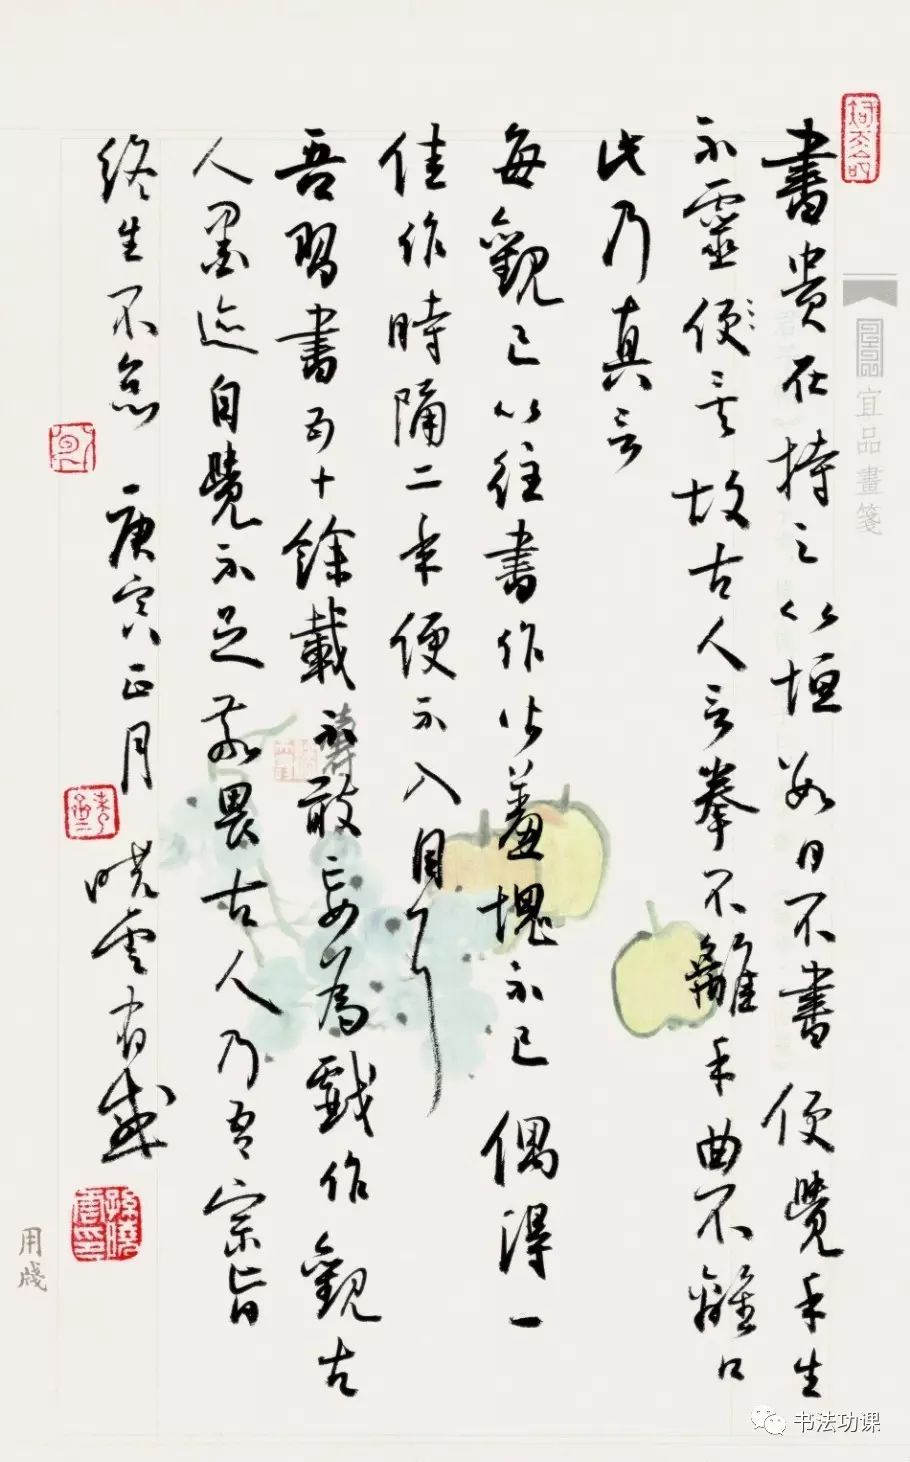 書貴在持之以恒數日不書便覺手生
不靈便矣故古人言拳不離手曲不離口
此乃真言
每觀已以往書作皆羞愧不已偶得一
佳作時隔二年便不入目了
吾習書五十餘載不敢妄為戲作觀古
人墨迹自覺不足敬畏古人乃吾宗旨
終生不怠 庚寅正月 曉雲有感
孫曉雲印
宜品畫箋
用牋
书法功课